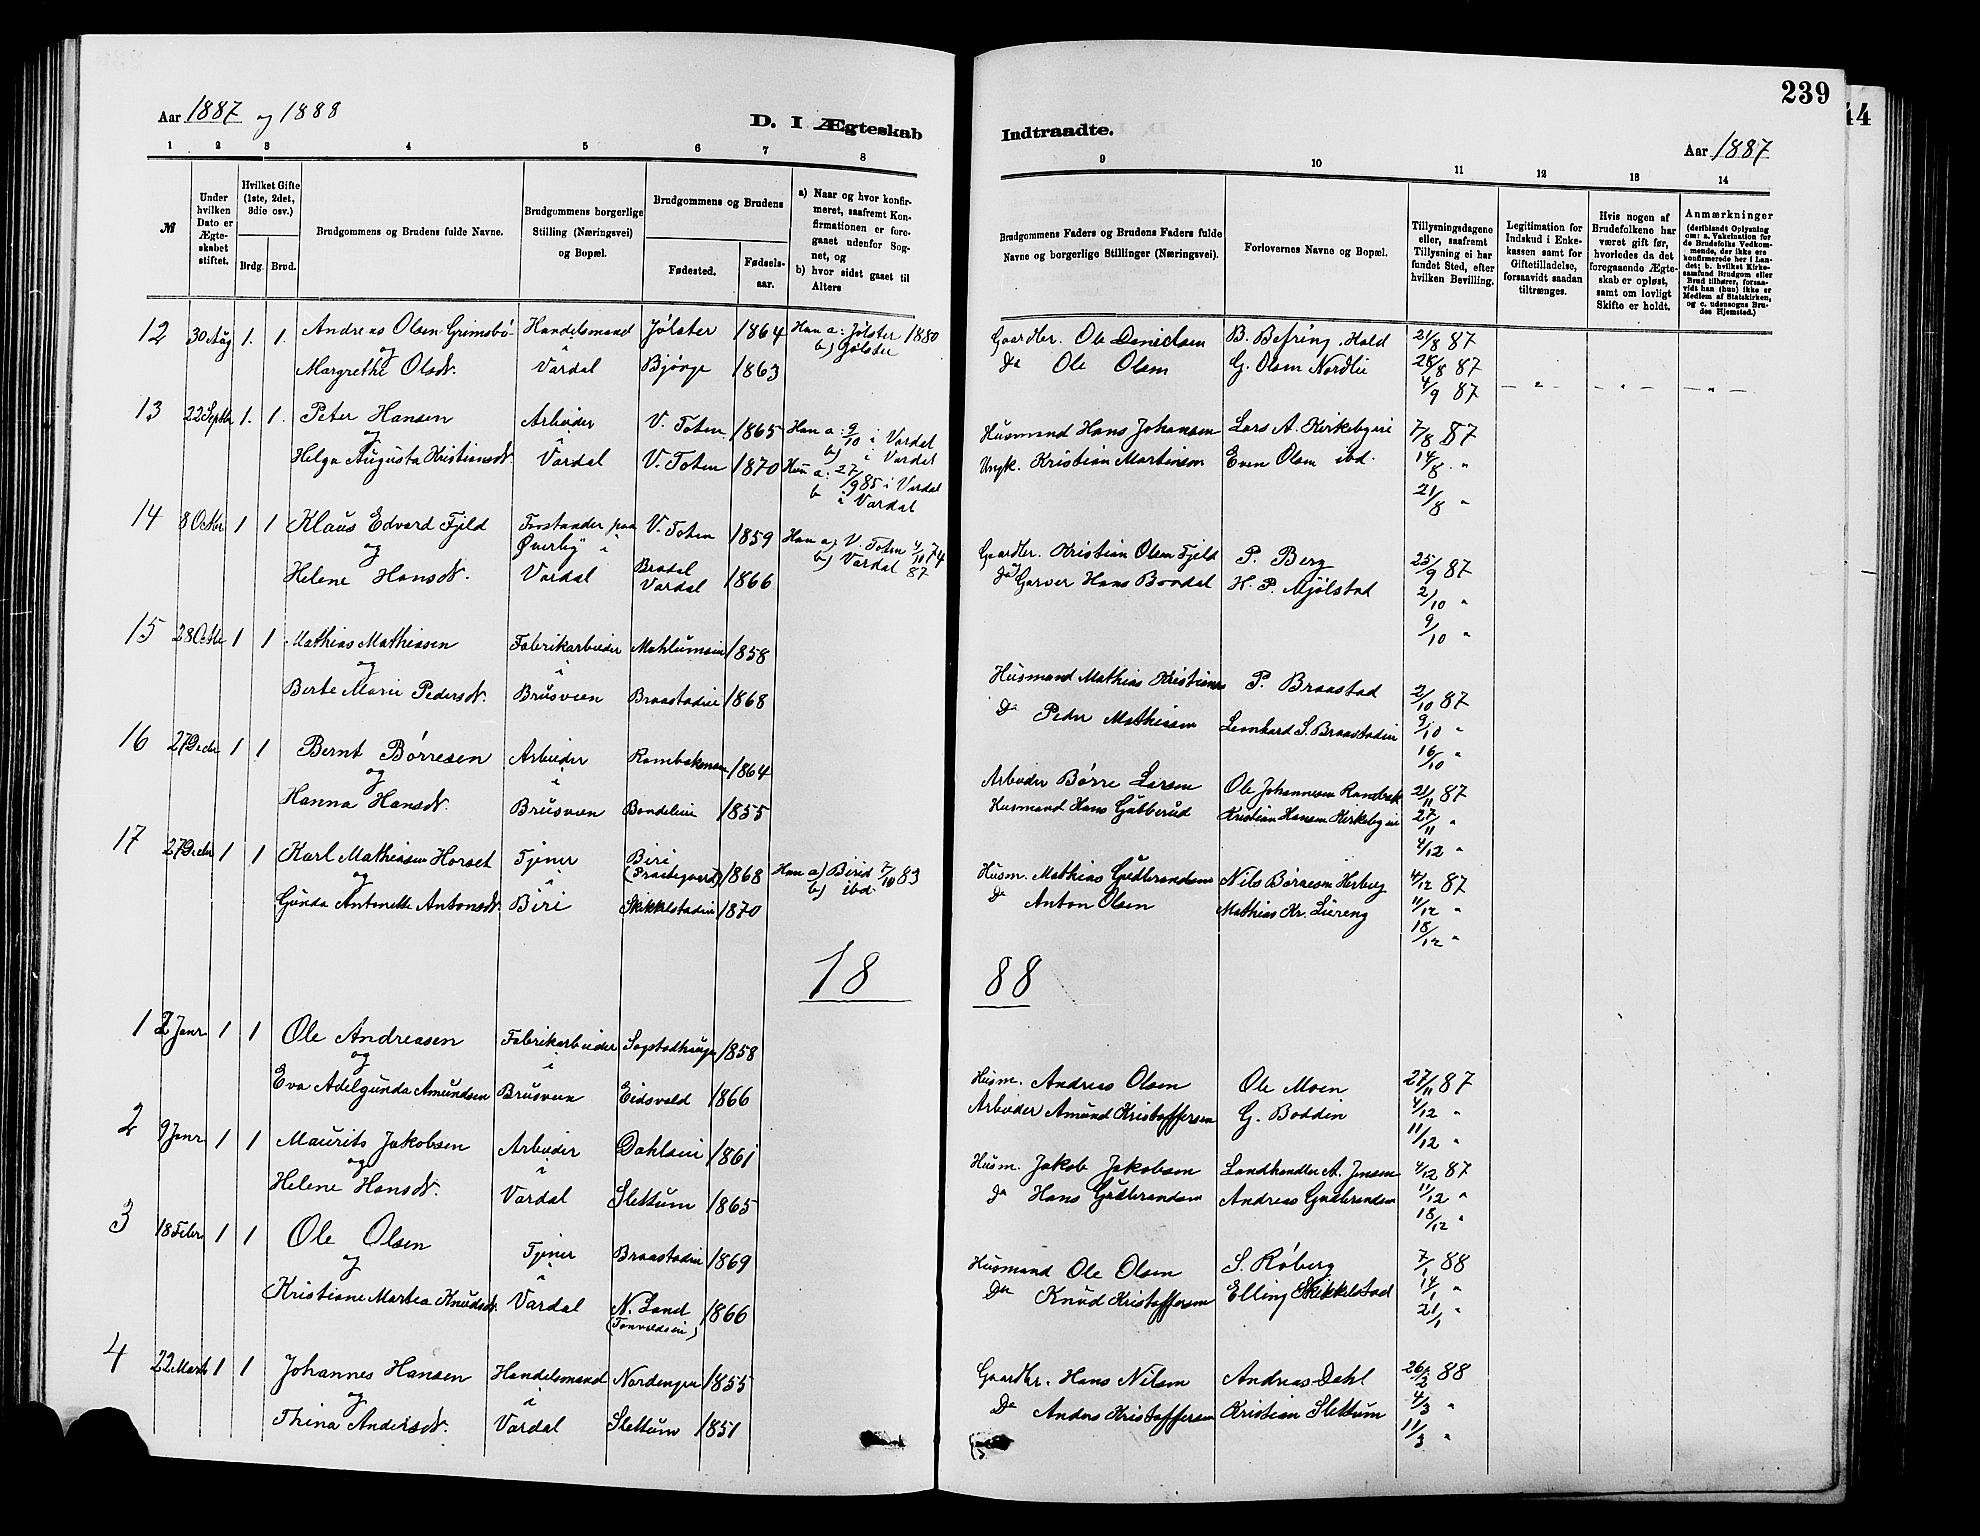 239
44
Aar 1887 og 1888
D. I Ægteskab Indtraadte.
Aar 1887
1 2 3 4 5 6 7 8 9 10 11 12 13 14
№
Under hvilken Dato er Ægteskabet stiftet.
Hvilket Gifte (1ste, 2det, 3die osv.)
Brdg. Brud.
Brudgommens og Brudens fulde Navne.
Brudgommens borgerlige Stilling (Næringsvei) og Bopæl.
Brudgommens og Brudens
Fødested. Fødselsaar.
a) Naar og hvor konfirmeret, saafremt Konfirmationen er foregaaet udenfor Sognet, og
b) hvor sidst gaaet til Alters
Brudgommens Faders og Brudens Faders fulde Navne og borgerlige Stillinger (Næringsvei).
Forlovernes Navne og Bopæl.
Tillysningsdagene eller, saafremt Tillysning ei har fundet Sted, efter hvilken Bevilling.
Legitimation for Indskud i Enkekassen samt for Giftetilladelse, forsaavidt saadan tiltrænges.
Hvis nogen af Brudefolkene har været gift før, hvorledes da det foregaaende Ægteskab er opløst, samt om lovligt Skifte er holdt.
Anmærkninger (deriblandt Oplysning om: a. Vakcination for de Brudefolks Vedkommende, der ikke ere konfirmerede her i Landet; b. hvilket Kirkesamfund Brudgom eller Brud tilhører, forsaavidt han (hun) ikke er Medlem af Statskirken, og c. udensogns Brudes Hjemsted.)
12 30 Aug 1. 1. Andreas Olsen Grimsbø Handelsmand Jølster 1864 Han a: Jølster 1880 Gaardbr. Ole Danielsen B. Befring, Hald 21/8 87
og i b) Jølster
Margrethe Olsdt. Vardal Bjønge 1863 Do Ole Olsen G. Olsen Nordlie 28/8 87
4/9 87 - " - - " - - " -
13 22 Septbr 1. 1. Peter Hansen Arbeider V. Toten 1865 Han a: 9/10 i Vardal Husmand Hans Johansen Lars A. Kirkebyeie 7/8 87
og i b) i Vardal
Helga Augusta Kristiansdt. Vardal V. Toten 1870 Hun a: 27/9 85 i Vardal Ungk. Kristian Martinsen Even Olsen ibd. 14/8 "
b i Vardal 21/8 "
14 8 Octbr 1 1 Klaus Edvard Fjeld Forstander paa V. Toten 1859 Han a: V. Toten 4/10 74 Gaardbr. Kristian Olsen Fjeld P. Berg 25/9 87
og Øverby i b) Vardal 87
Helene Hansdt. Vardal Vardal 1866 Garver Hans Bondal H. P. Mjølstad 2/10 "
9/10 "
15 28 Octbr 1 1 Mathias Mathiassen Fabrikarbeider 1858 Husmand Mathias P. Braastad 2/10 87
og i
Berte Marie Pedersdt. Brusveen Braastadeie 1868 Do Peder Mathiassen Lenhard S. Braastadeie 9/10 "
16/10 "
16 27 Decbr 1 1 Bernt Børresen Arbeider 1864 Arbeider Børre Larsen Ole Johannesen 21/11 87
og i
Hanna Hansdt. Brusveen Bondeleie 1855 Husmand Hans Gubberud Kristian Hansen Kirkebyeie 27/11 "
4/12 "
17 27 Decbr 1 1 Karl Mathiassen Horset Tjener Biri (Præstegaard) 1868 Han a) Birid 7/10 83 Husm. Mathias Gudbrandsen Nils Børresen 4/12 87
og i b) ibd.
Gunda Antonette Antonsdt. Biri Skikkelstadeie 1870 Do Anton Olsen Mathias Kr. Liereng 11/12 "
18/12 "
1888
1 2 Janr 1 1 Ole Andreasen Fabrikarbeider 1858 Husm. Andreas Olsen Ole Moen 27/11 87
og i
Eva Adelgunda Amundsen Brusveen Eidsvold 1866 Arbeider Amund Kristoffersen G. Boddin 4/12 "
11/12 "
2 9 Janr 1 1 Maurits Jakobsen Arbeider Dahlseie 1861 Husm. Jakob Jakobsen Landhandler A. Jensen 4/12 87
og i
Helene Hansdt. Vardal Slettum 1865 Do Hans Gudbrandsen Andreas Gudbrandsen 11/12 "
18/12 "
3 18 Febr 1 1 Ole Olsen Tjener Braastadeie 1869 Husmand Ole Olsen S. Røberg 7/1 88
og i
Kristiane Martea Knudsdt. Vardal N. Land 1866 Do Knud Kristoffersen Elling Skikkelstad 14/1 "
21/1 "
4 22 Marts 1 1 Johannes Hansen Handelsmand Nordengen 1855 Gaardbr. Hans Nilsen Andreas Dahl 26/2 88
og i
Thina Andersdt. Vardal Slettum 1851 Do Anders Kristoffersen Kristian Slettum 4/3 "
11/3 "